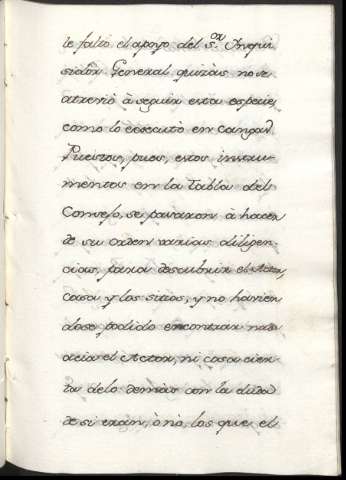 le faltó el apoyo del S.or Ynqui
sidor General quizàs no se
atreviò à seguir esta especie
como lo executò en
Puestos, pues, estos instru-
mentos en la tabla del
Consejo, se pasaron à hacer
de su orden varias diligen-
cias, para descubrir el Actor,
casa y los sitios, y no havien
dose podido encontrar
acia el Actor, ni cosa cier-
ta delo demàs con la duda
de si eran, ò nò, los que el